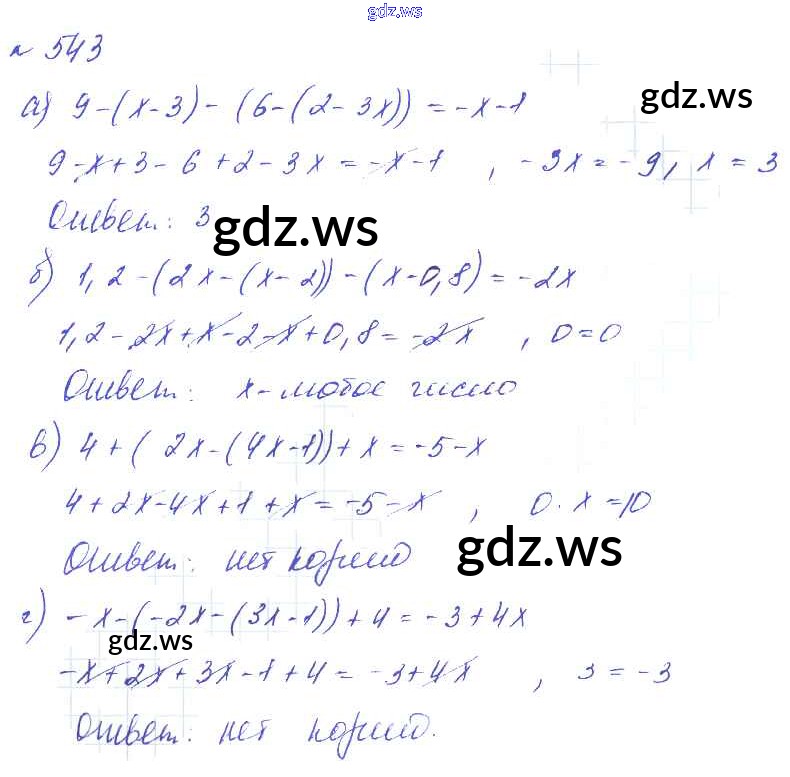 gdz.ws
№ 543
а) 9-(x-3)-(6-(2-3x))=-x-1
gdz.ws
9-x+3-6+2-3x=-x-1 , -3x=-9, x=3
Ответ: 3
gdz.ws
б) 1,2-(2x-(x-2))-(x-0,8)=-2x
1,2-2x+x-2-x+0,8=-2x , 0=0
Ответ: x-любое число
в) 4+(2x-(4x-1))+x=-5-x
4+2x-4x+1+x=-5-x , 0·x=10
Ответ: нет корней
gdz.ws
г) -x-(-2x-(3x-1))+4=-3+4x
gdz.ws
-x+2x+3x-1+4=-3+4x , 3=-3
Ответ: нет корней.